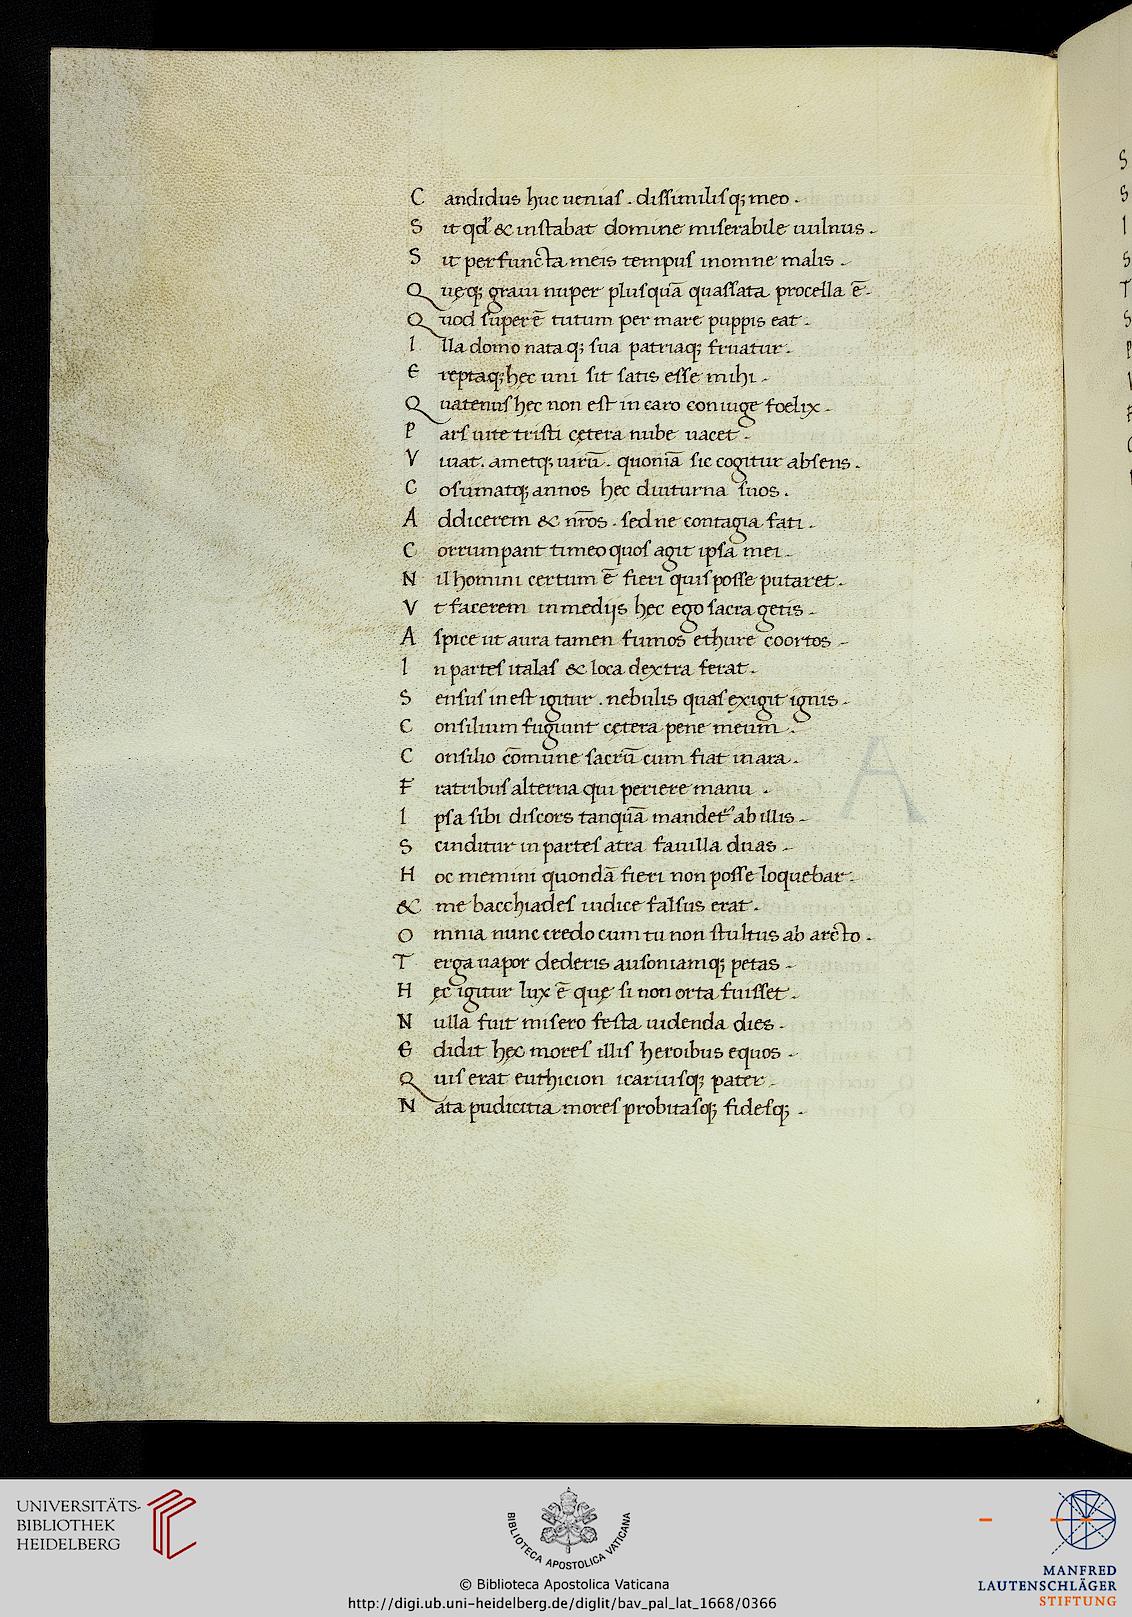 C andidus huc uenias . dissimilisq; meo .
S it qd' & instabat domine miserabile uulnus .
S it perfuncta meis tempus inomne malis .
Q ueq; graui nuper plusquā quassata procella ē .
Q uod superē tutum per mare puppis eat .
I lla domo nataq; sua patriaq; fruatur .
E reptaq; hec uni sit satis esse mihi .
Q uatenus hec non est in caro coniuge foelix .
P ars uite tristi cętera nube uacet .
V iuat . ametq; uirū . quoniā sic cogitur absens .
C osumatq; annos hęc diuturna suos .
A ddicerem & nr̄os . sed ne contagia fati .
C orrumpant timeo quos agit ipsa mei .
N il homini certum ē fieri quis posse putaret .
V t facerem in medijs hęc ego sacra getis .
A spice ut aura tamen fumos ethure coortos .
I n partes italas & loca dextra ferat .
S ensus inest igitur . nebulis quas exigit ignis .
C onsilium fugiunt cętera pene meum .
C onsilio cōmune sacrū cum fiat in ara .
F ratribus alterna qui periere manu .
I psa sibi discors tanquā mandet' ab illis .
S cinditur in partes atra fauilla duas .
H oc memini quondā fieri non posse loquebar .
& me bacchiades iudice falsus erat .
O mnia nunc credo cum tu non stultus ab arcto .
T erga uapor dederis ausoniamq; petas .
H ęc igitur lux ē quę si non orta fuisset .
N ulla fuit misero festa uidenda dies .
E didit hęc mores illis heroibus equos .
Q uis erat euthicion icariusq; pater .
N ata pudicitia mores probitasq; fidesq; .
UNIVERSITÄTS-
BIBLIOTHEK
HEIDELBERG
BIBLIOTECA APOSTOLICA VATICANA
© Biblioteca Apostolica Vaticana
http://digi.ub.uni-heidelberg.de/diglit/bav_pal_lat_1668/0366
MANFRED
LAUTENSCHLÄGER
STIFTUNG